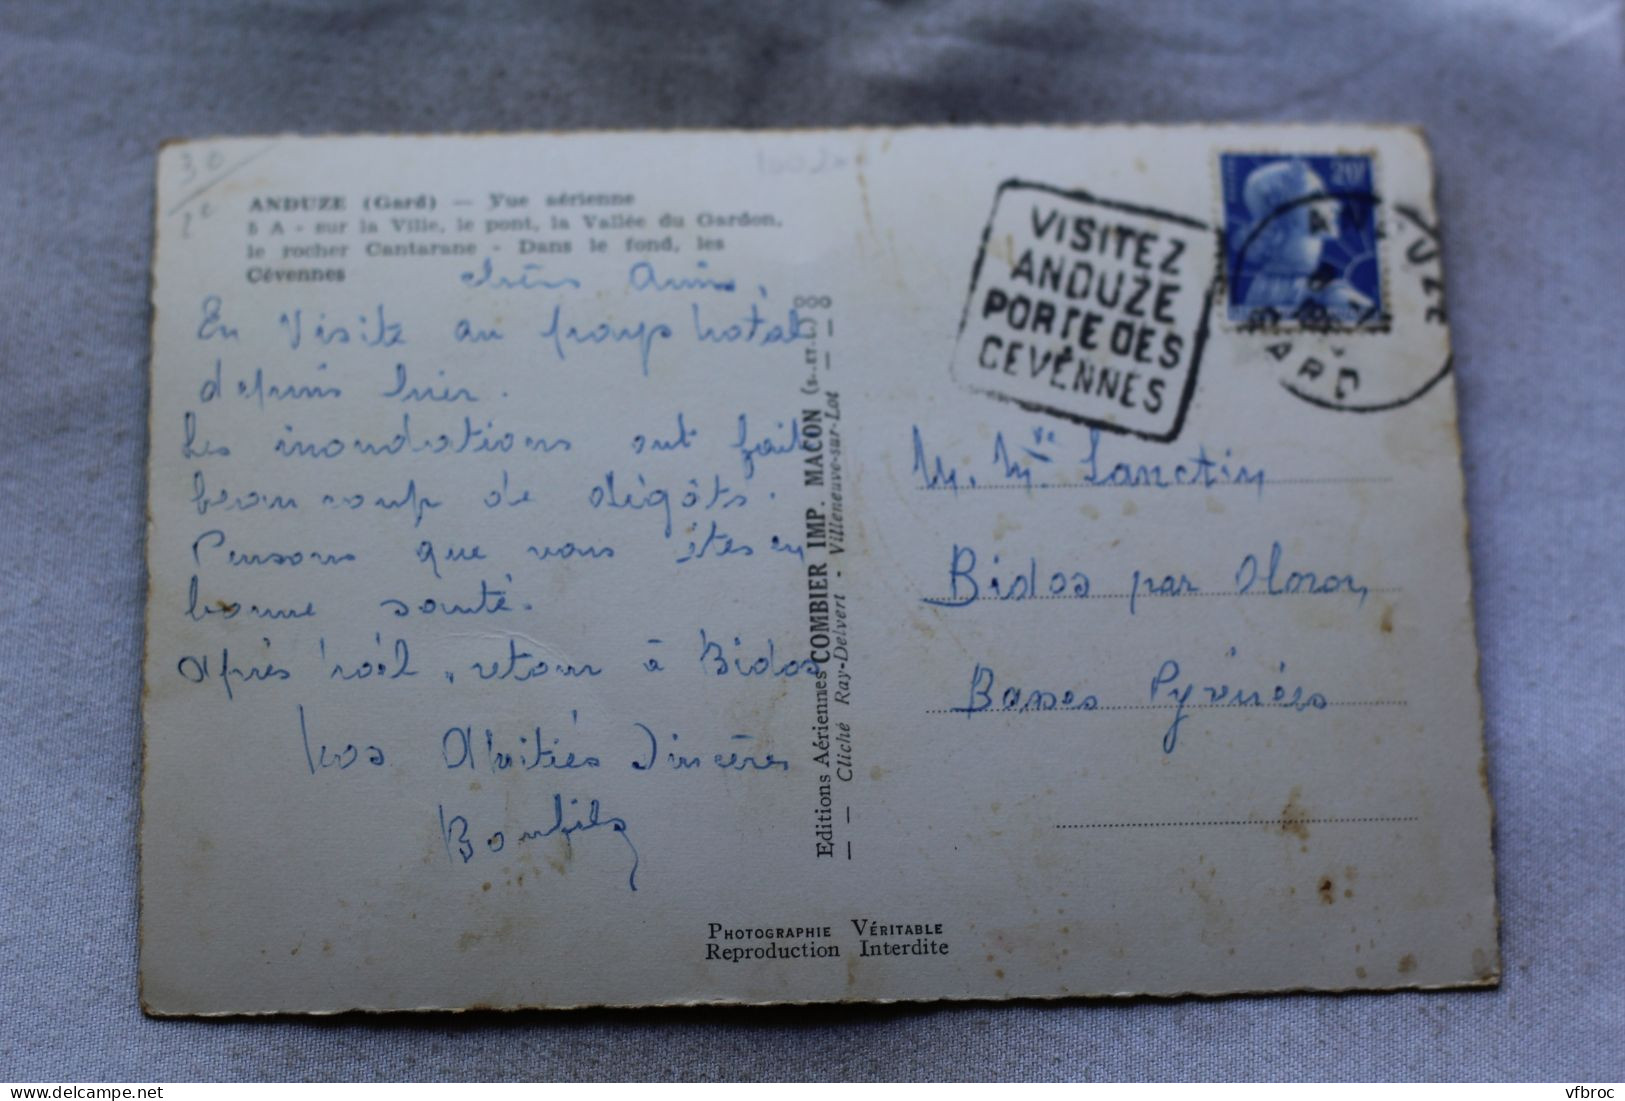 30
ANDUZE (Gard) — Vue aérienne
5 A - sur la Ville, le pont, la Vallée du Gardon,
le rocher Cantarane - Dans le fond, les
Cévennes
chers Amis,
En Visite au
depuis hier.
Les inondations ont fait
beaucoup de dégâts.
Pensons que vous êtes en
bonne santé.
après Noël, retour à Bidos
Amitiés Sincères
Bonfils
Editions Aériennes COMBIER IMP. MACON (S.-ET-L.) ooo
— — Cliché Ray-Delvert - Villeneuve-sur-Lot — — —
VISITEZ
ANDUZE
PORTE DES
CEVENNES
20F
ANDUZE
GARD
M. Mme Sanctin
Bidos par Oloron
Basses Pyrénées
PHOTOGRAPHIE VÉRITABLE
Reproduction Interdite
vfbroc